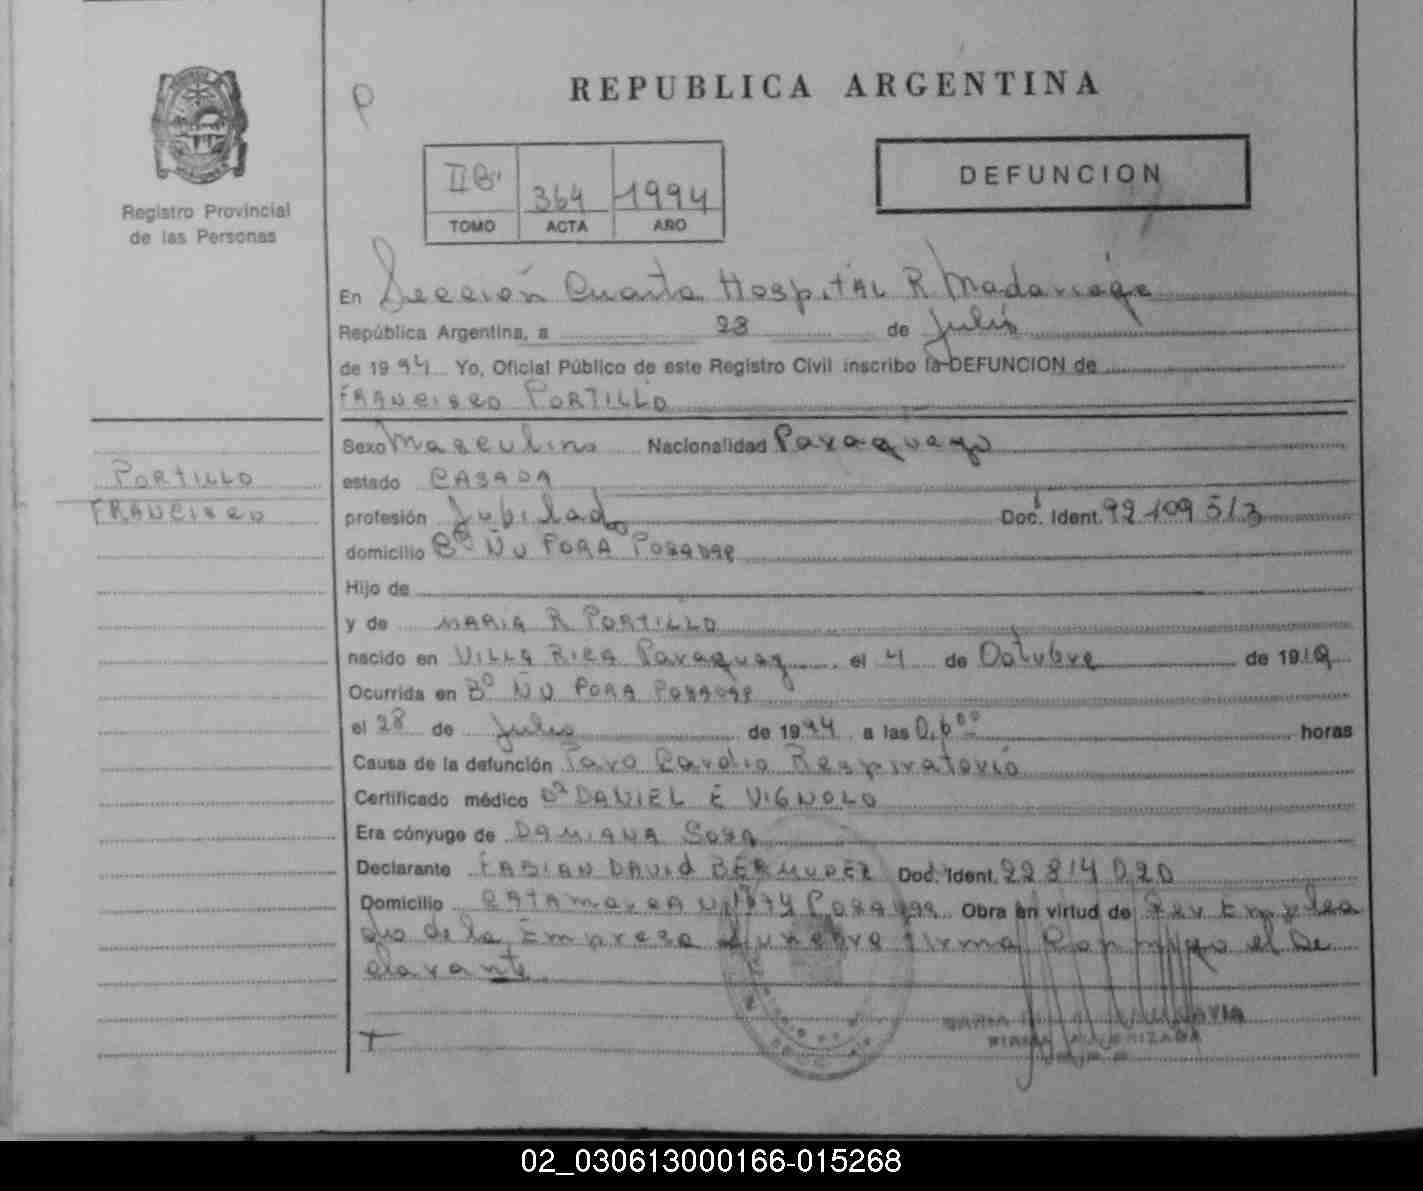 REPUBLICA ARGENTINA
P
DEFUNCION
364 1994
TOMO ACTA AÑO
Registro Provincial
de las Personas
En Sección Cuarta Hospital R Madariaga
República Argentina, a 28 de Julio
de 1994 Yo, Oficial Público de este Registro Civil inscribo la DEFUNCION de
FRANCISCO PORTILLO
Sexo Masculino Nacionalidad Paraguayo
PORTILLO
FRANCISCO
estado CASADA
profesión Jubilado Doc. Ident. 92109513
domicilio Bº ÑU PORA POSADAS
Hijo de
y de MARIA R PORTILLO
nacido en VILLA RICA Paraguay el 4 de Octubre de 1919
Ocurrida en Bº ÑU PORA POSADAS
el 28 de Julio de 1994 a las 0,6⁰⁰ horas
Causa de la defunción Paro Cardio Respiratorio
Certificado médico Dr DANIEL E VIGNOLO
Era cónyuge de DAMIANA SOSA
Declarante FABIAN DAVID BERMUDEZ Doc. Ident. 22814020
Domicilio CATAMARCA Nº POSADAS Obra en virtud de Ser Emplea
do de la Empresa funebre firma el De
clarante
02_030613000166-015268